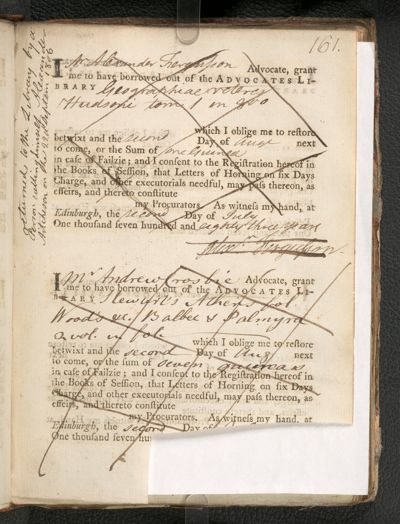 161.
I Mr Alexander Ferguson Advocate, grant
me to have borrowed out of the ADVOCATES LI-
BRARY Geographiae veteris
Hudsoni tom 1 in 8vo
which I oblige me to restore
betwixt and the second Day of Augt next
to come, or the Sum of one guinea
in case of Failzie; and I consent to the Registration hereof in
the Books of Session, that Letters of Horning on six Days
Charge, and other executorials needful, may pass thereon, as
effeirs, and thereto constitute
my Procurators. As witness my hand, at
Edinburgh, the second Day of July
One thousand seven hundred and eighty three years
Alexr Fergusson.
Returned to the Library by a
Person calling himself Alexander
on the 22d 1806
I Mr Andrew Crosbie Advocate, grant
me to have borrowed out of the ADVOCATES LI-
BRARY Athens fol.
Woods &c. Balbec & Palmyra
2 vol. in fol.
which I oblige me to restore
betwixt and the second Day of Augt next
to come, or the sum of seven guineas
in case of Failzie; and I consent to the Registration hereof in
the Books of Session, that Letters of Horning on six Days
Charge, and other executorials needful, may pass thereon, as
effeirs, and thereto constitute
my Procurators. As witness my hand, at
Edinburgh, the second Day of
One thousand seven hun